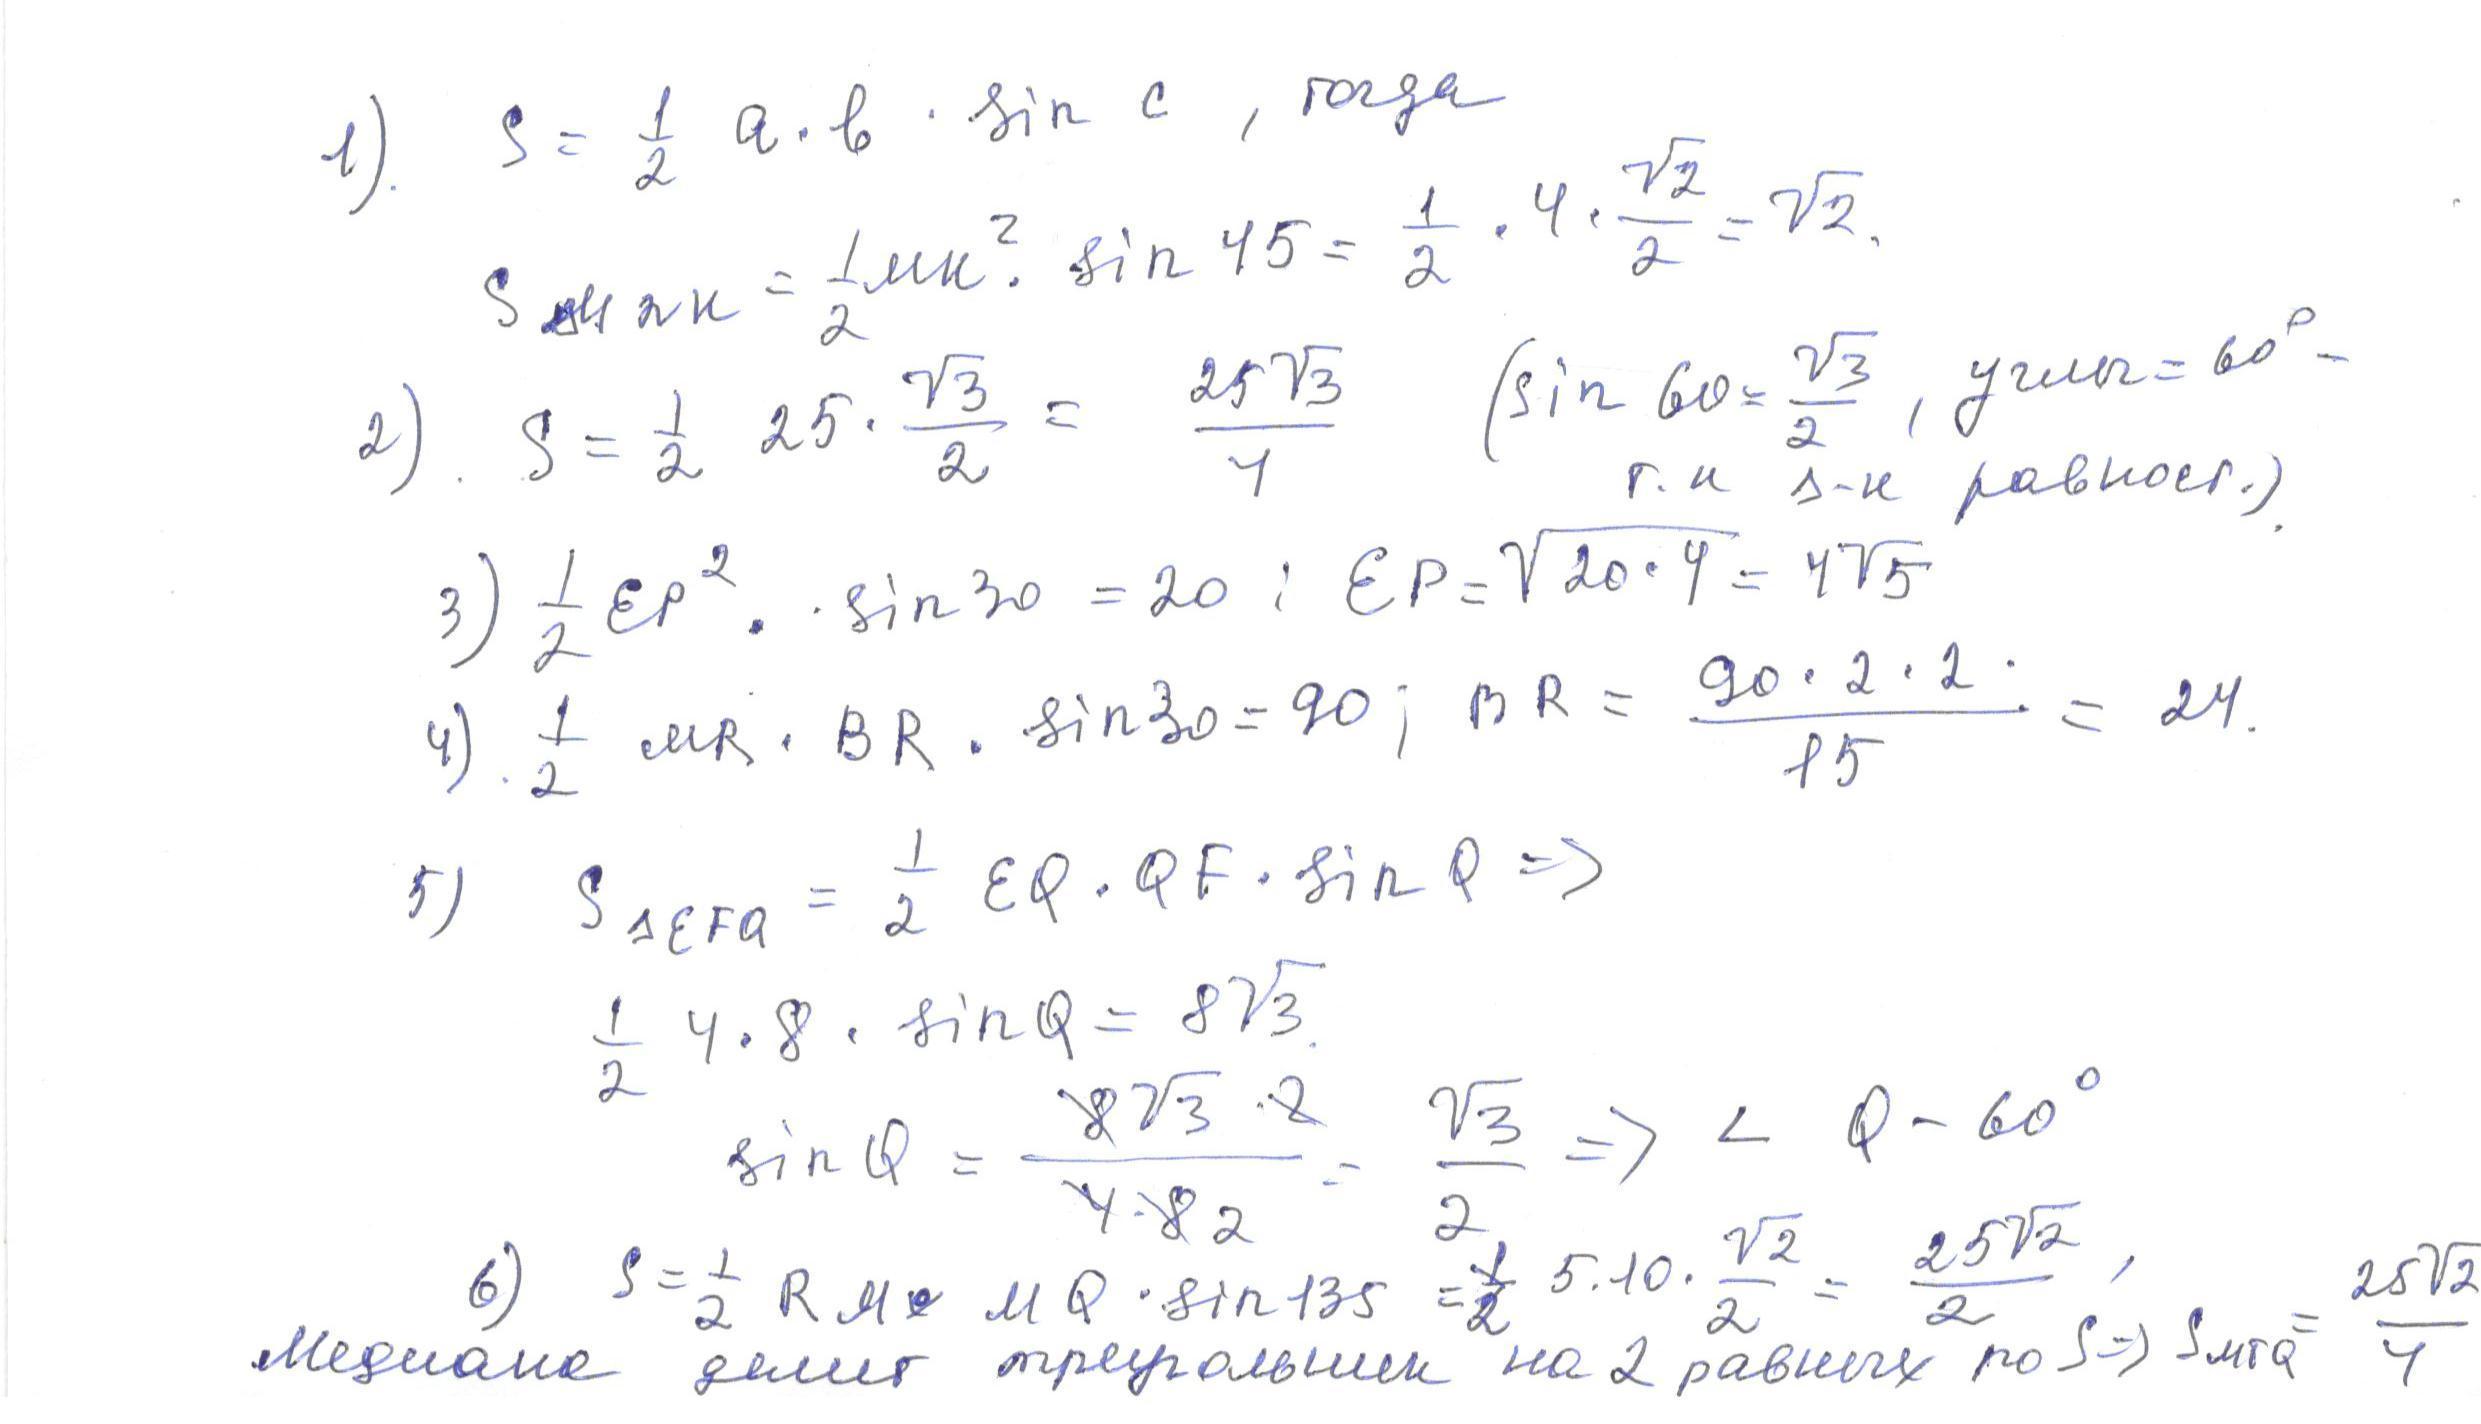 1). S = 1/2 a · b · sin c, тогда
S MNK = 1/2 MK² · sin 45 = 1/2 · 4 · √2/2 = √2.
2). S = 1/2 25 · √3/2 = 25√3/4 (sin 60 = √3/2, углы = 60° –
т.к Δ-к равност.).
3) 1/2 EP² · sin 30 = 20 ; EP = √20·4 = 4√5
4). 1/2 MR · BR · sin 30 = 90 ; BR = 90 · 2 · 2/15 = 24.
5) S ΔEFQ = 1/2 EQ · QF · sin Q =>
1/2 4 · 8 · sin Q = 8√3.
sin Q = 8√3 · 2/4 · 8 2 = √3/2 => ∠ Q – 60°
6) S = 1/2 RM · MQ · sin 135 = 1/2 5 · 10 · √2/2 = 25√2/2,
Медиана делит треугольник на 2 равных по S => S MTQ = 25√2/4